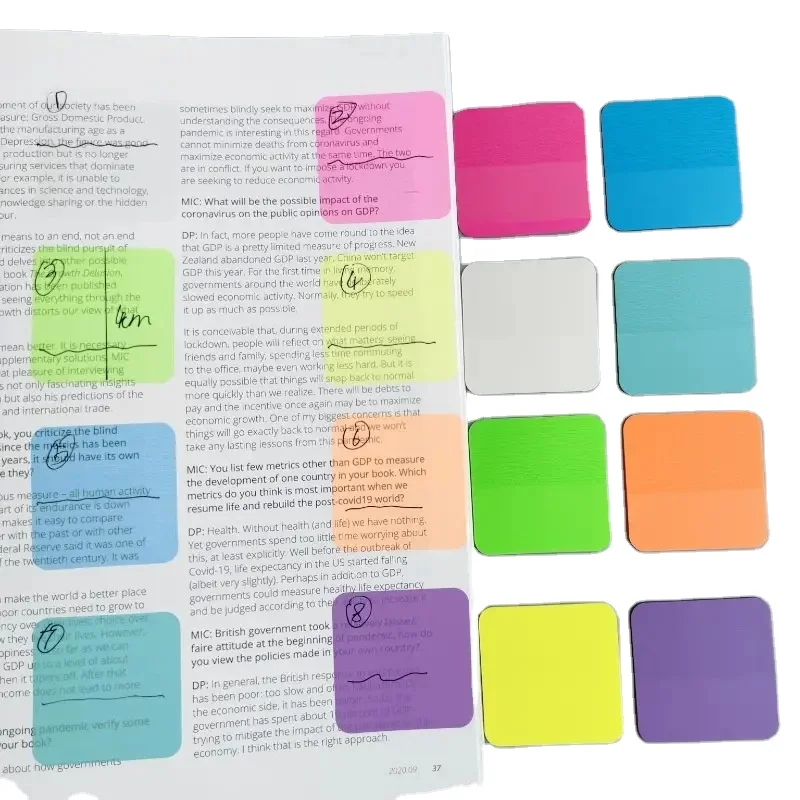 oment of our society has been
asure: Gross Domestic Product.
the manufacturing age as a
Depression, the figure was good
production but is no longer
suring services that dominate
or example, it is unable to
ances in science and technology,
nowledge sharing or the hidden
our.
means to an end, not an end
criticizes the blind pursuit of
d delves into other possible
book The Growth Delusion,
ation has been published
seeing everything through the
owth distorts our view of what
mean better. It is necessary
upplementary solutions. MIC
at pleasure of interviewing
s not only fascinating insights
n but also his predictions of the
and international trade.
ok, you criticize the blind
since the metrics has been
years, it should have its own
e they?
ous measure – all human activity
art of its endurance is down
makes it easy to compare
er with the past or with other
deral Reserve said it was one of
f the twentieth century. It was
make the world a better place
oor countries need to grow to
ncy over lives, choice over
w they lives. However,
ppiness so far as we can
GDP up to a level of about
hen it tapers off. After that
ncome does not lead to more
ongoing pandemic verify some
your book?
about how governments
sometimes blindly seek to maximize GDP without
understanding the consequences. ongoing
pandemic is interesting in this regard. Governments
cannot minimize deaths from coronavirus and
maximize economic activity at the same time. The two
are in conflict. If you want to impose a lockdown you
are seeking to reduce economic activity.
MIC: What will be the possible impact of the
coronavirus on the public opinions on GDP?
DP: In fact, more people have come round to the idea
that GDP is a pretty limited measure of progress. New
Zealand abandoned GDP last year. China won't target
GDP this year. For the first time in living memory,
governments around the world have deliberately
slowed economic activity. Normally, they try to speed
it up as much as possible.
It is conceivable that, during extended periods of
lockdown, people will reflect on what matters: seeing
friends and family, spending less time commuting
to the office, maybe even working less hard. But it is
equally possible that things will snap back to normal
more quickly than we realize. There will be debts to
pay and the incentive once again may be to maximize
economic growth. One of my biggest concerns is that
things will go exactly back to normal and we won't
take any lasting lessons from this pandemic.
MIC: You list few metrics other than GDP to measure
the development of one country in your book. Which
metrics do you think is most important when we
resume life and rebuild the post-covid19 world?
DP: Health. Without health (and life) we have nothing.
Yet governments spend too little time worrying about
this, at least explicitly. Well before the outbreak of
Covid-19, life expectancy in the US started falling
(albeit very slightly). Perhaps in addition to GDP,
governments could measure healthy life expectancy
and be judged according to the increase it
MIC: British government took a relatively laissez
faire attitude at the beginning of pandemic, how do
you view the policies made in your own country?
DP: In general, the British response
has been poor: too slow and
the economic side, it has been
government has spent about
trying to mitigate the impact of
economy. I think that is the right approach.
2020.09 37
1
2
3
4cm
4
5
6
7
8